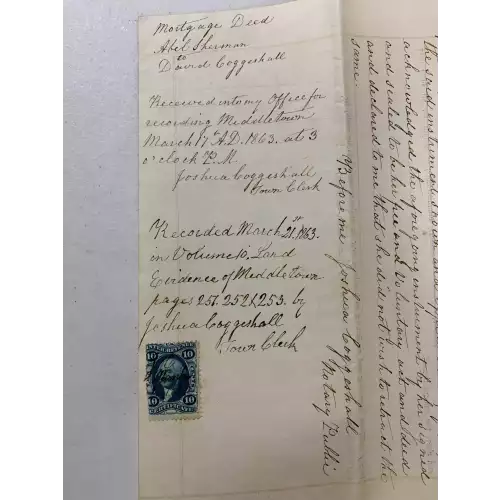 Mortgage Deed
Abel Sherman
to
David Coggeshall
Received into my Office for
recording Middletown
March 17th A.D. 1863. at 3
o'clock P.M.
Joshua Coggeshall
Town Clerk
Recorded March 21st 1863.
in Volume 10, Land
Evidence of Middletown
pages 251. 252 & 253. by
Joshua Coggeshall
Town Clerk
10 10
10 CERTIFICATE 10
The said
acknowledged the aforegoing instrument by her signed
and sealed to be her free and Voluntary act and deed
and declared to me that she did not wish to retract the
same.
Before me Joshua Coggeshall
Notary Public